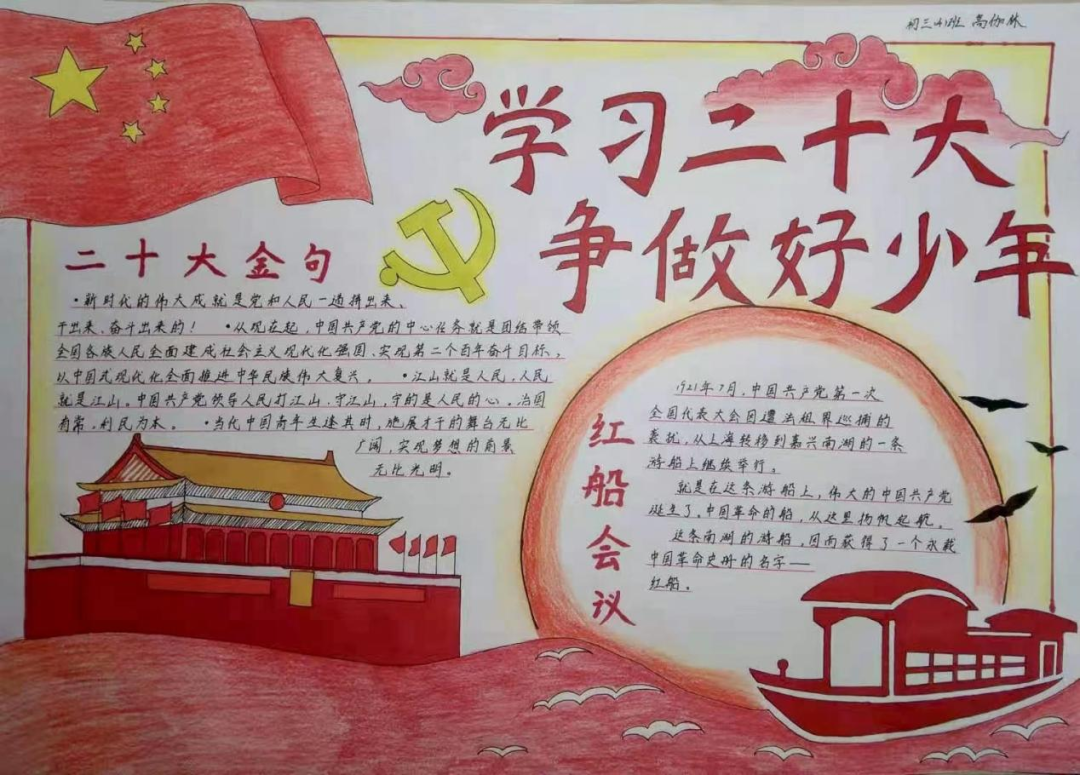 初三4班 高伽林
学习二十大
争做好少年
二十大金句
·新时代的伟大成就是党和人民一道拼出来、
干出来、奋斗出来的！ ·从现在起，中国共产党的中心任务就是团结带领
全国各族人民全面建成社会主义现代化强国、实现第二个百年奋斗目标，
以中国式现代化全面推进中华民族伟大复兴。 ·江山就是人民，人民
就是江山。中国共产党领导人民打江山、守江山，守的是人民的心。治国
有常，利民为本。 ·当代中国青年生逢其时，施展才干的舞台无比
广阔，实现梦想的前景
无比光明。
红船会议
1921年7月，中国共产党第一次
全国代表大会因遭法租界巡捕的
袭扰，从上海转移到嘉兴南湖的一条
游船上继续举行。
就是在这条游船上，伟大的中国共产党
诞生了，中国革命的船，从这里扬帆起航。
这条南湖的游船，因而获得了一个永载
中国革命史册的名字——
红船。